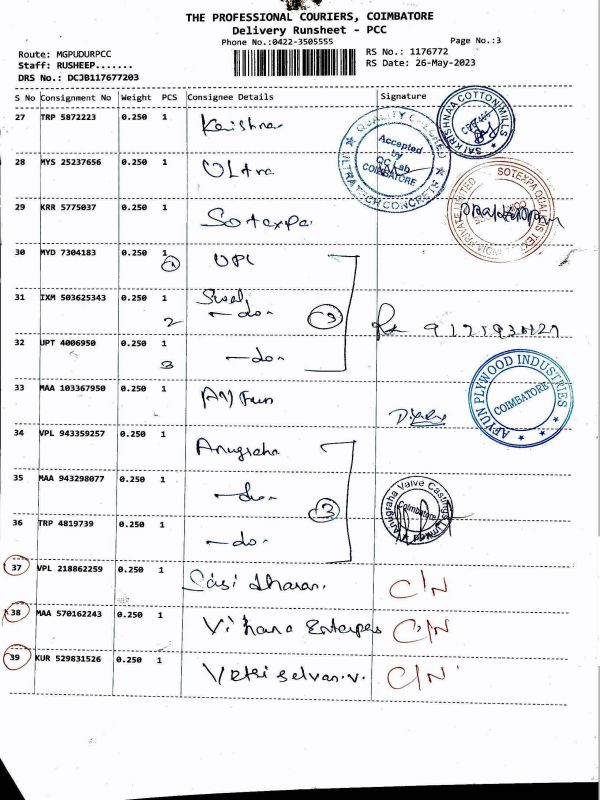 THE PROFESSIONAL COURIERS, COIMBATORE
Delivery Runsheet - PCC
Phone No.:0422-3505555
Page No.:3
Route: MGPUDURPCC
RS No.: 1176772
Staff: RUSHEEP.......
RS Date: 26-May-2023
DRS No.: DCJB117677203
S No Consignment No Weight PCS Consignee Details Signature
27 TRP 5872223 0.250 1 Krishna
SAI KRISHNAA COTTON MILLS
QUALITY CHECKED
Accepted by QC Lab
COIMBATORE
ULTRATECH CONCRETE
28 MYS 25237656 0.250 1 Ultra
29 KRR 5775037 0.250 1 Sotexpa
SOTEXPA QUALIS TEX
PRIVATE LIMITED
30 MYD 7304183 0.250 1 UPL
1
31 IXM 503625343 0.250 1
2 -do- 3
32 UPT 4006950 0.250 1
3 -do-
33 MAA 103367950 0.250 1 Ayfun
AFYUN PLYWOOD INDUSTRIES
COIMBATORE
34 VPL 943359257 0.250 1 Anugraha
35 MAA 943298077 0.250 1 -do-
3
Anugraha Valve Castings Limited
Coimbatore
36 TRP 4819739 0.250 1 -do-
37 VPL 218862259 0.250 1 Sasi dharan. C/N
38 MAA 570162243 0.250 1 Vihana Enterpes C/N
39 KUR 529831526 0.250 1 Vetri selvan.v. C/N